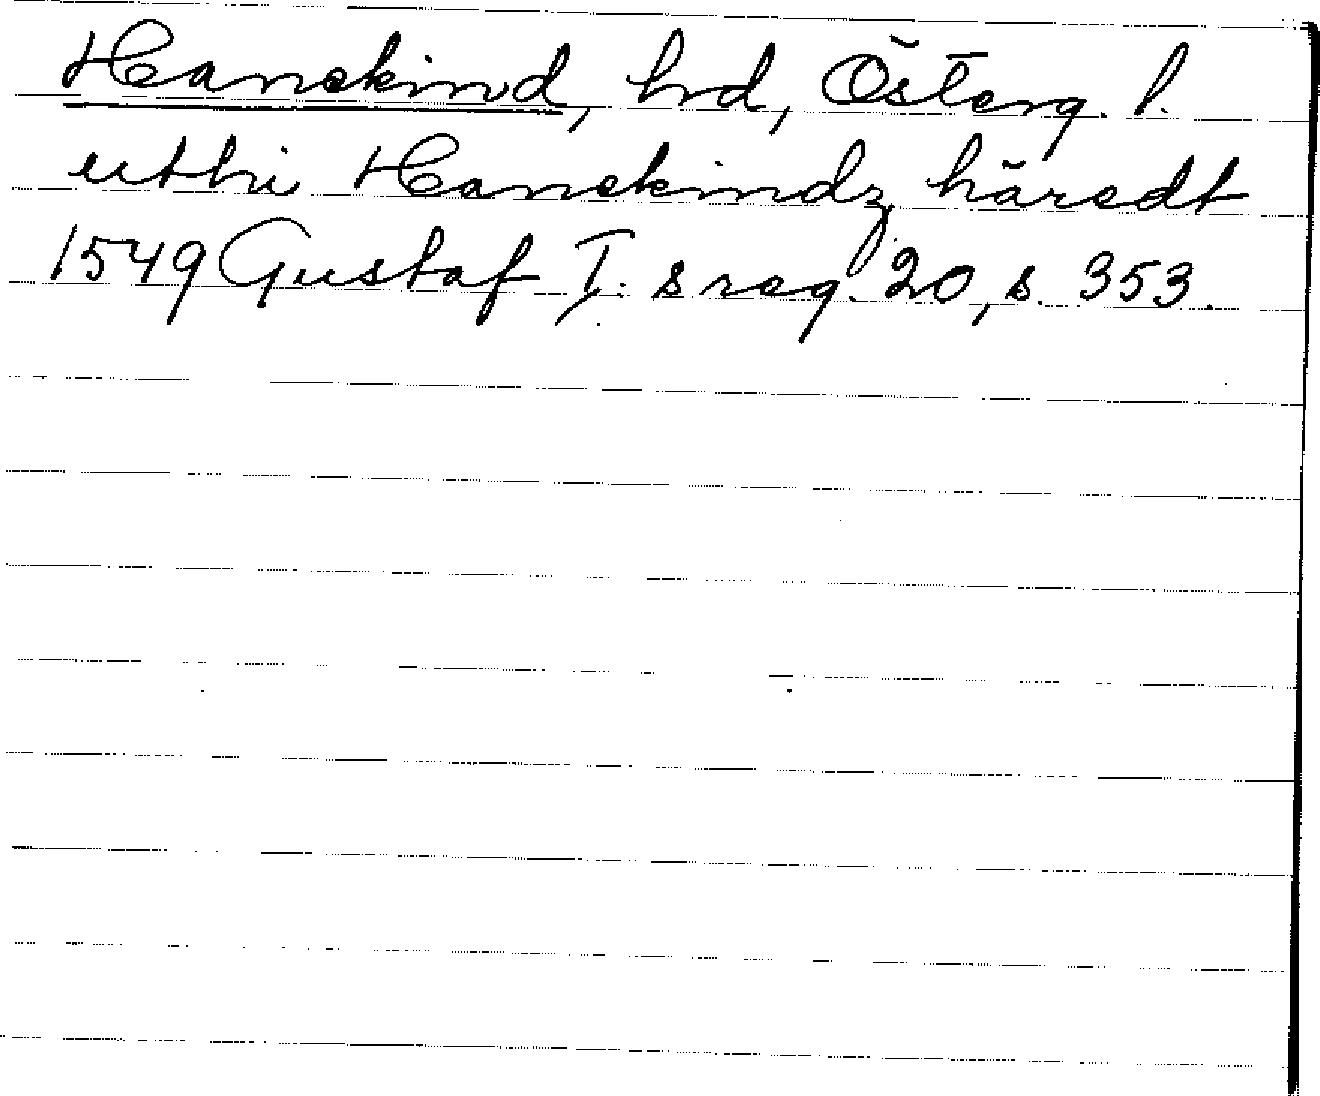 Hanekind, hrd, Österg. l.
uthi Hanekindz häredt
1549 Gustaf I:s reg. 20, s. 353.